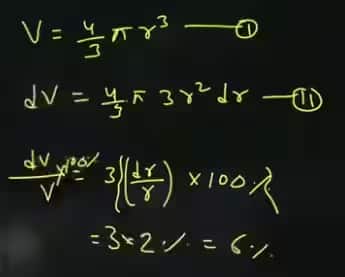 V = 4/3 π r³ —— Ⓘ
dV = 4/3 π 3r² dr —— Ⓘ Ⓘ
dv/V × 100% = 3{(dr/r) × 100%}
= 3 × 2 % = 6 %